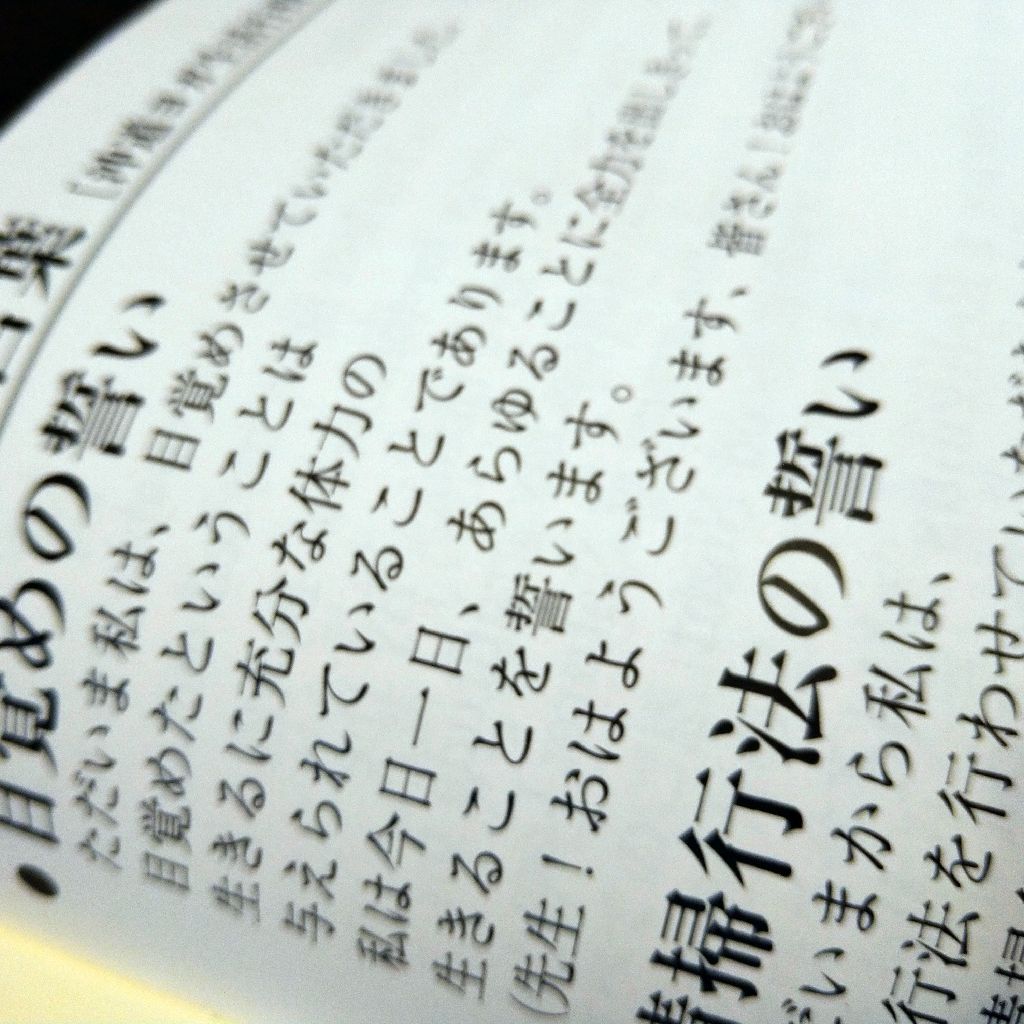 葉
●目覚めの誓い
ただいま私は、目覚めさせていただきました。
目覚めたということは
生きるに充分な体力の
与えられていることであります。
私は今日一日、あらゆることに全力を出しきって、
生きることを誓います。
(先生!おはようございます、皆さん!おはようござ
清掃行法の誓い
だいまから私は、
行法を行わせていただ